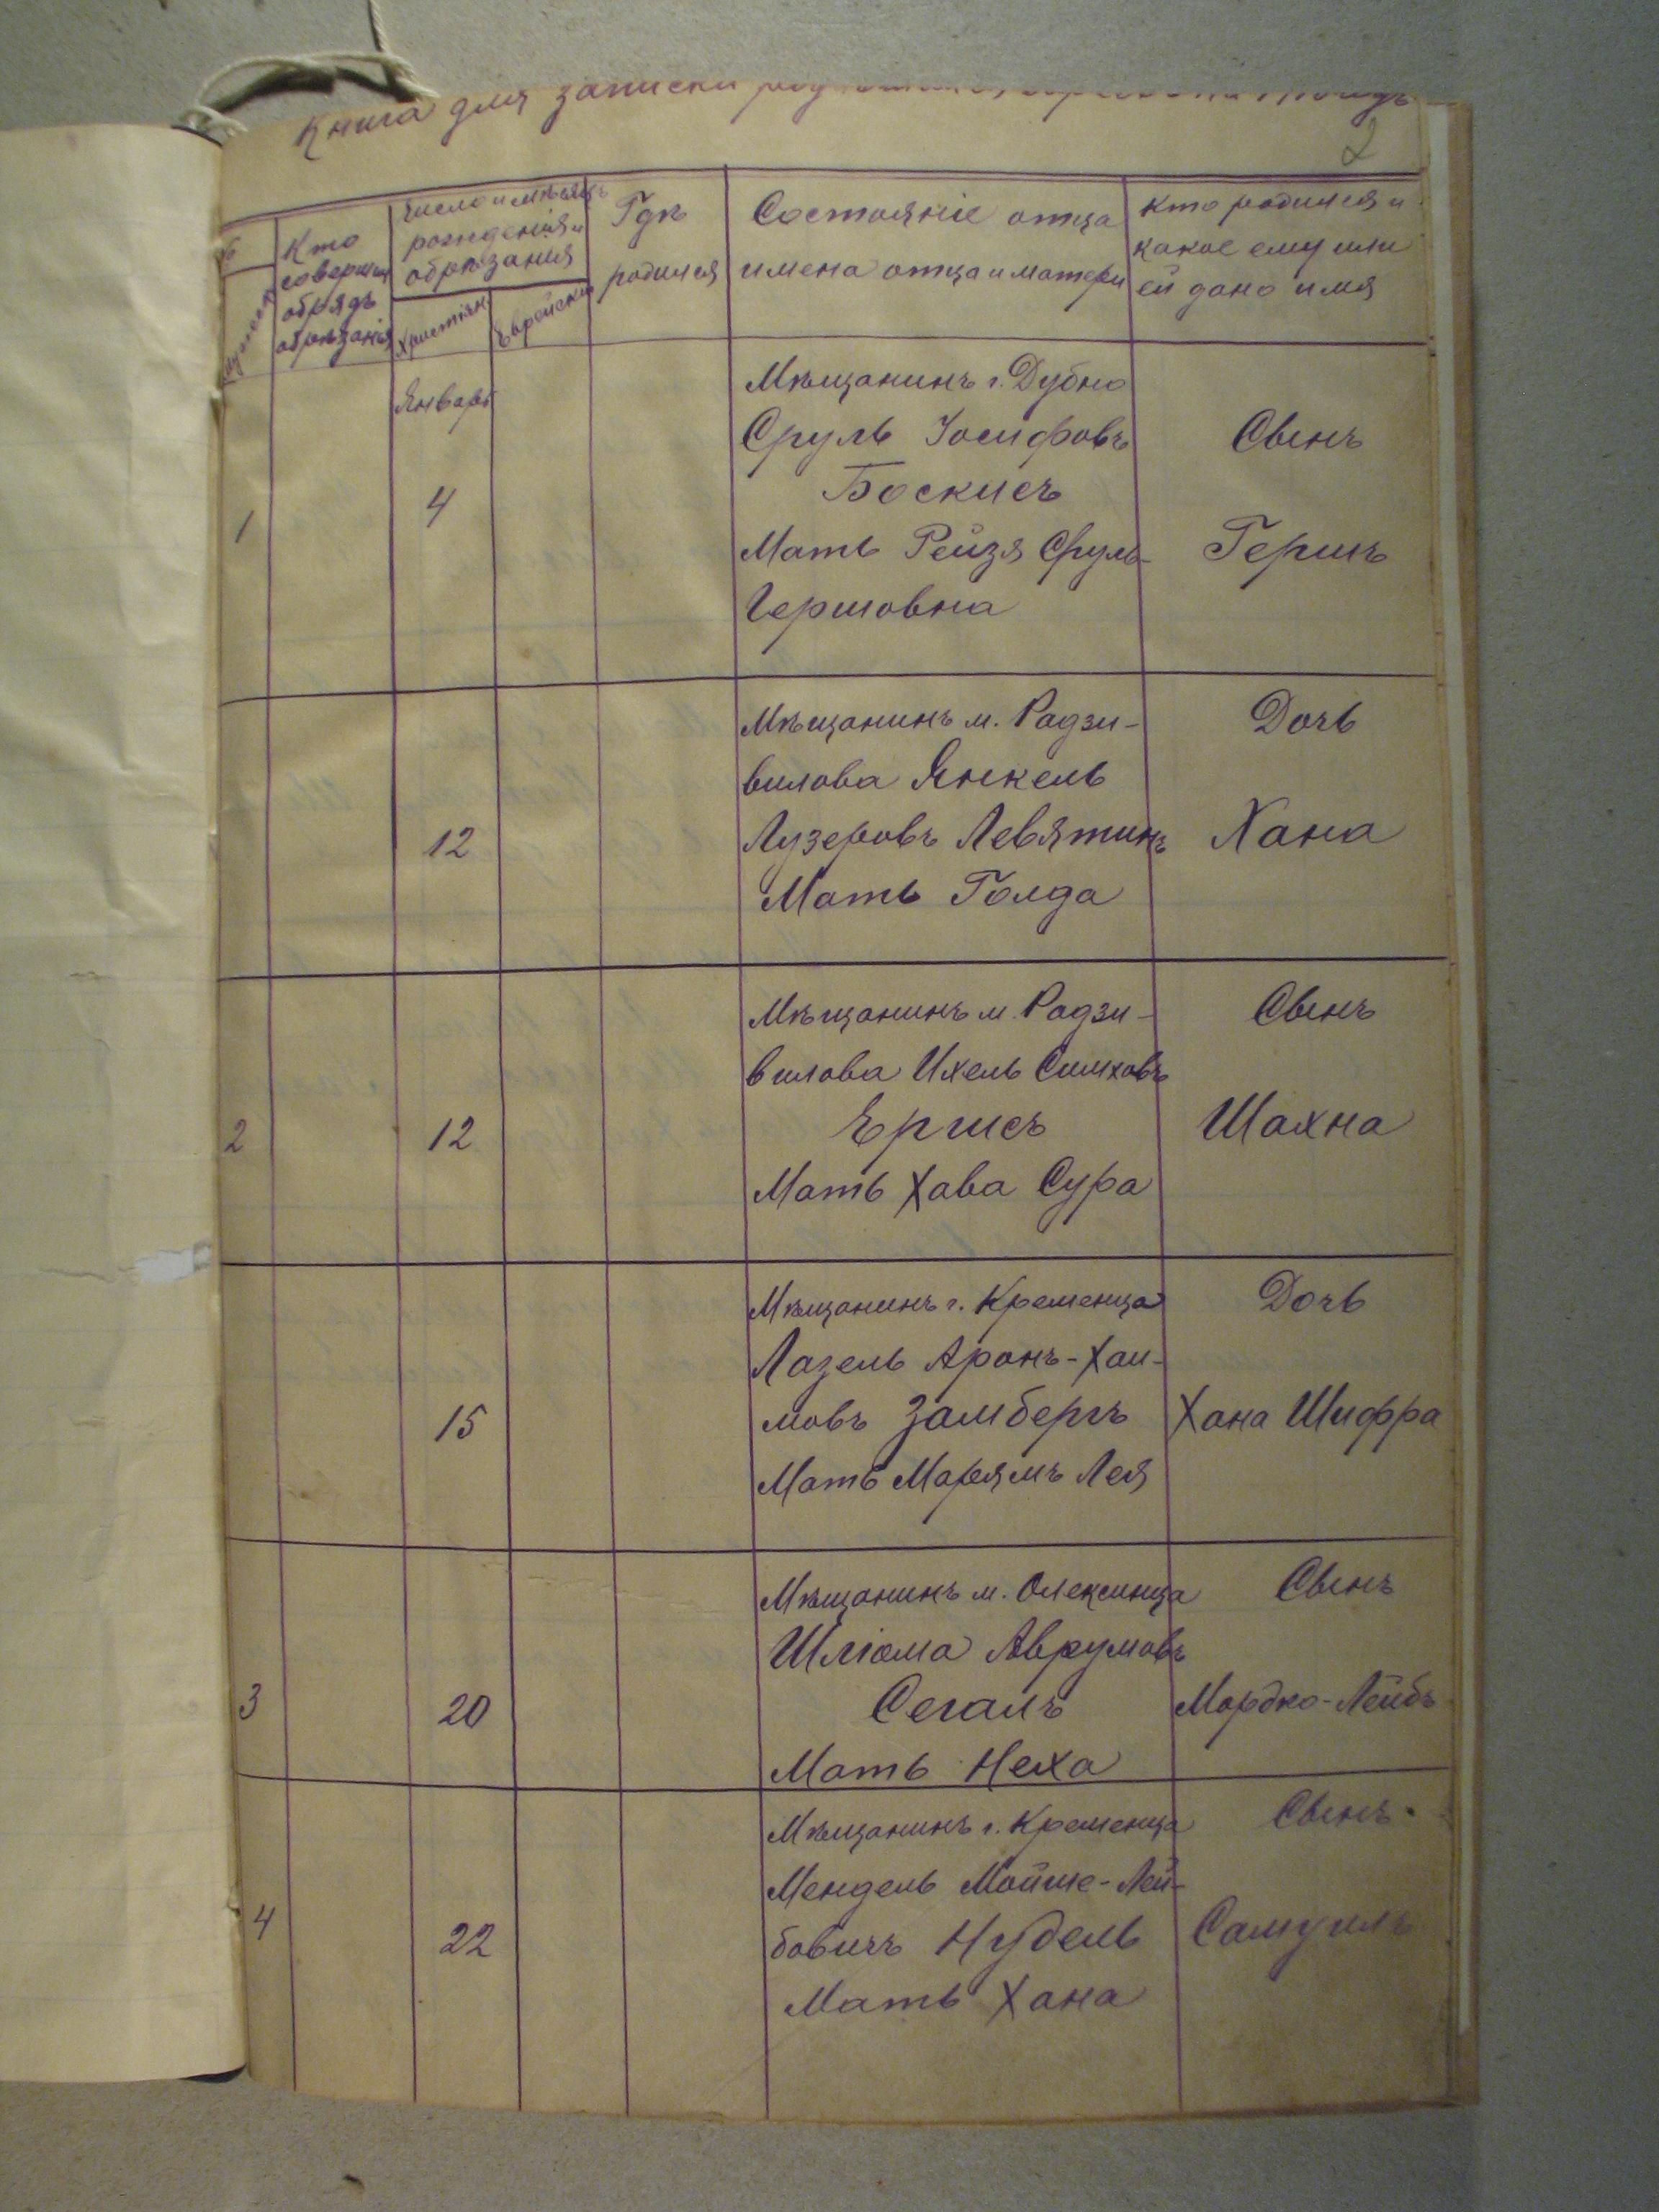 Книга для записки
2
№
мужеск
Кто
соверш
обрядъ
обрѣзанія
Число и мѣсяцъ
рожденія и
обрѣзанія
Христіян
Еврейски
Гдѣ
родился
Состояніе отца
имена отца и матери
Кто родился и
какое ему или
ей дано имя
1
Январь
4
Мѣщанинъ г. Дубно
Сруль Іосифовъ
Боскисъ
Мать Рейзя Сруль-
Гершовна
Сынъ
Гершъ
12
Мѣщанинъ м. Радзи-
вилова Янкель
Лузеровъ Левятинъ
Мать Голда
Дочь
Хана
2
12
Мѣщанинъ м. Радзи-
вилова Ихель Симховъ
Ергисъ
Мать Хава Сура
Сынъ
Шахна
15
Мѣщанинъ г. Кременца
Лазель Аронъ-Хаи-
мовъ Замбергъ
Мать Марямъ Лея
Дочь
Хана Шифра
3
20
Мѣщанинъ м. Олексинца
Шліома Аврумовъ
Сегалъ
Мать Неха
Сынъ
Мордко-Лейбъ
4
22
Мѣщанинъ г. Кременца
Мендель Мойше-Лей-
бовичъ Нудель
Мать Хана
Сынъ
Самуилъ